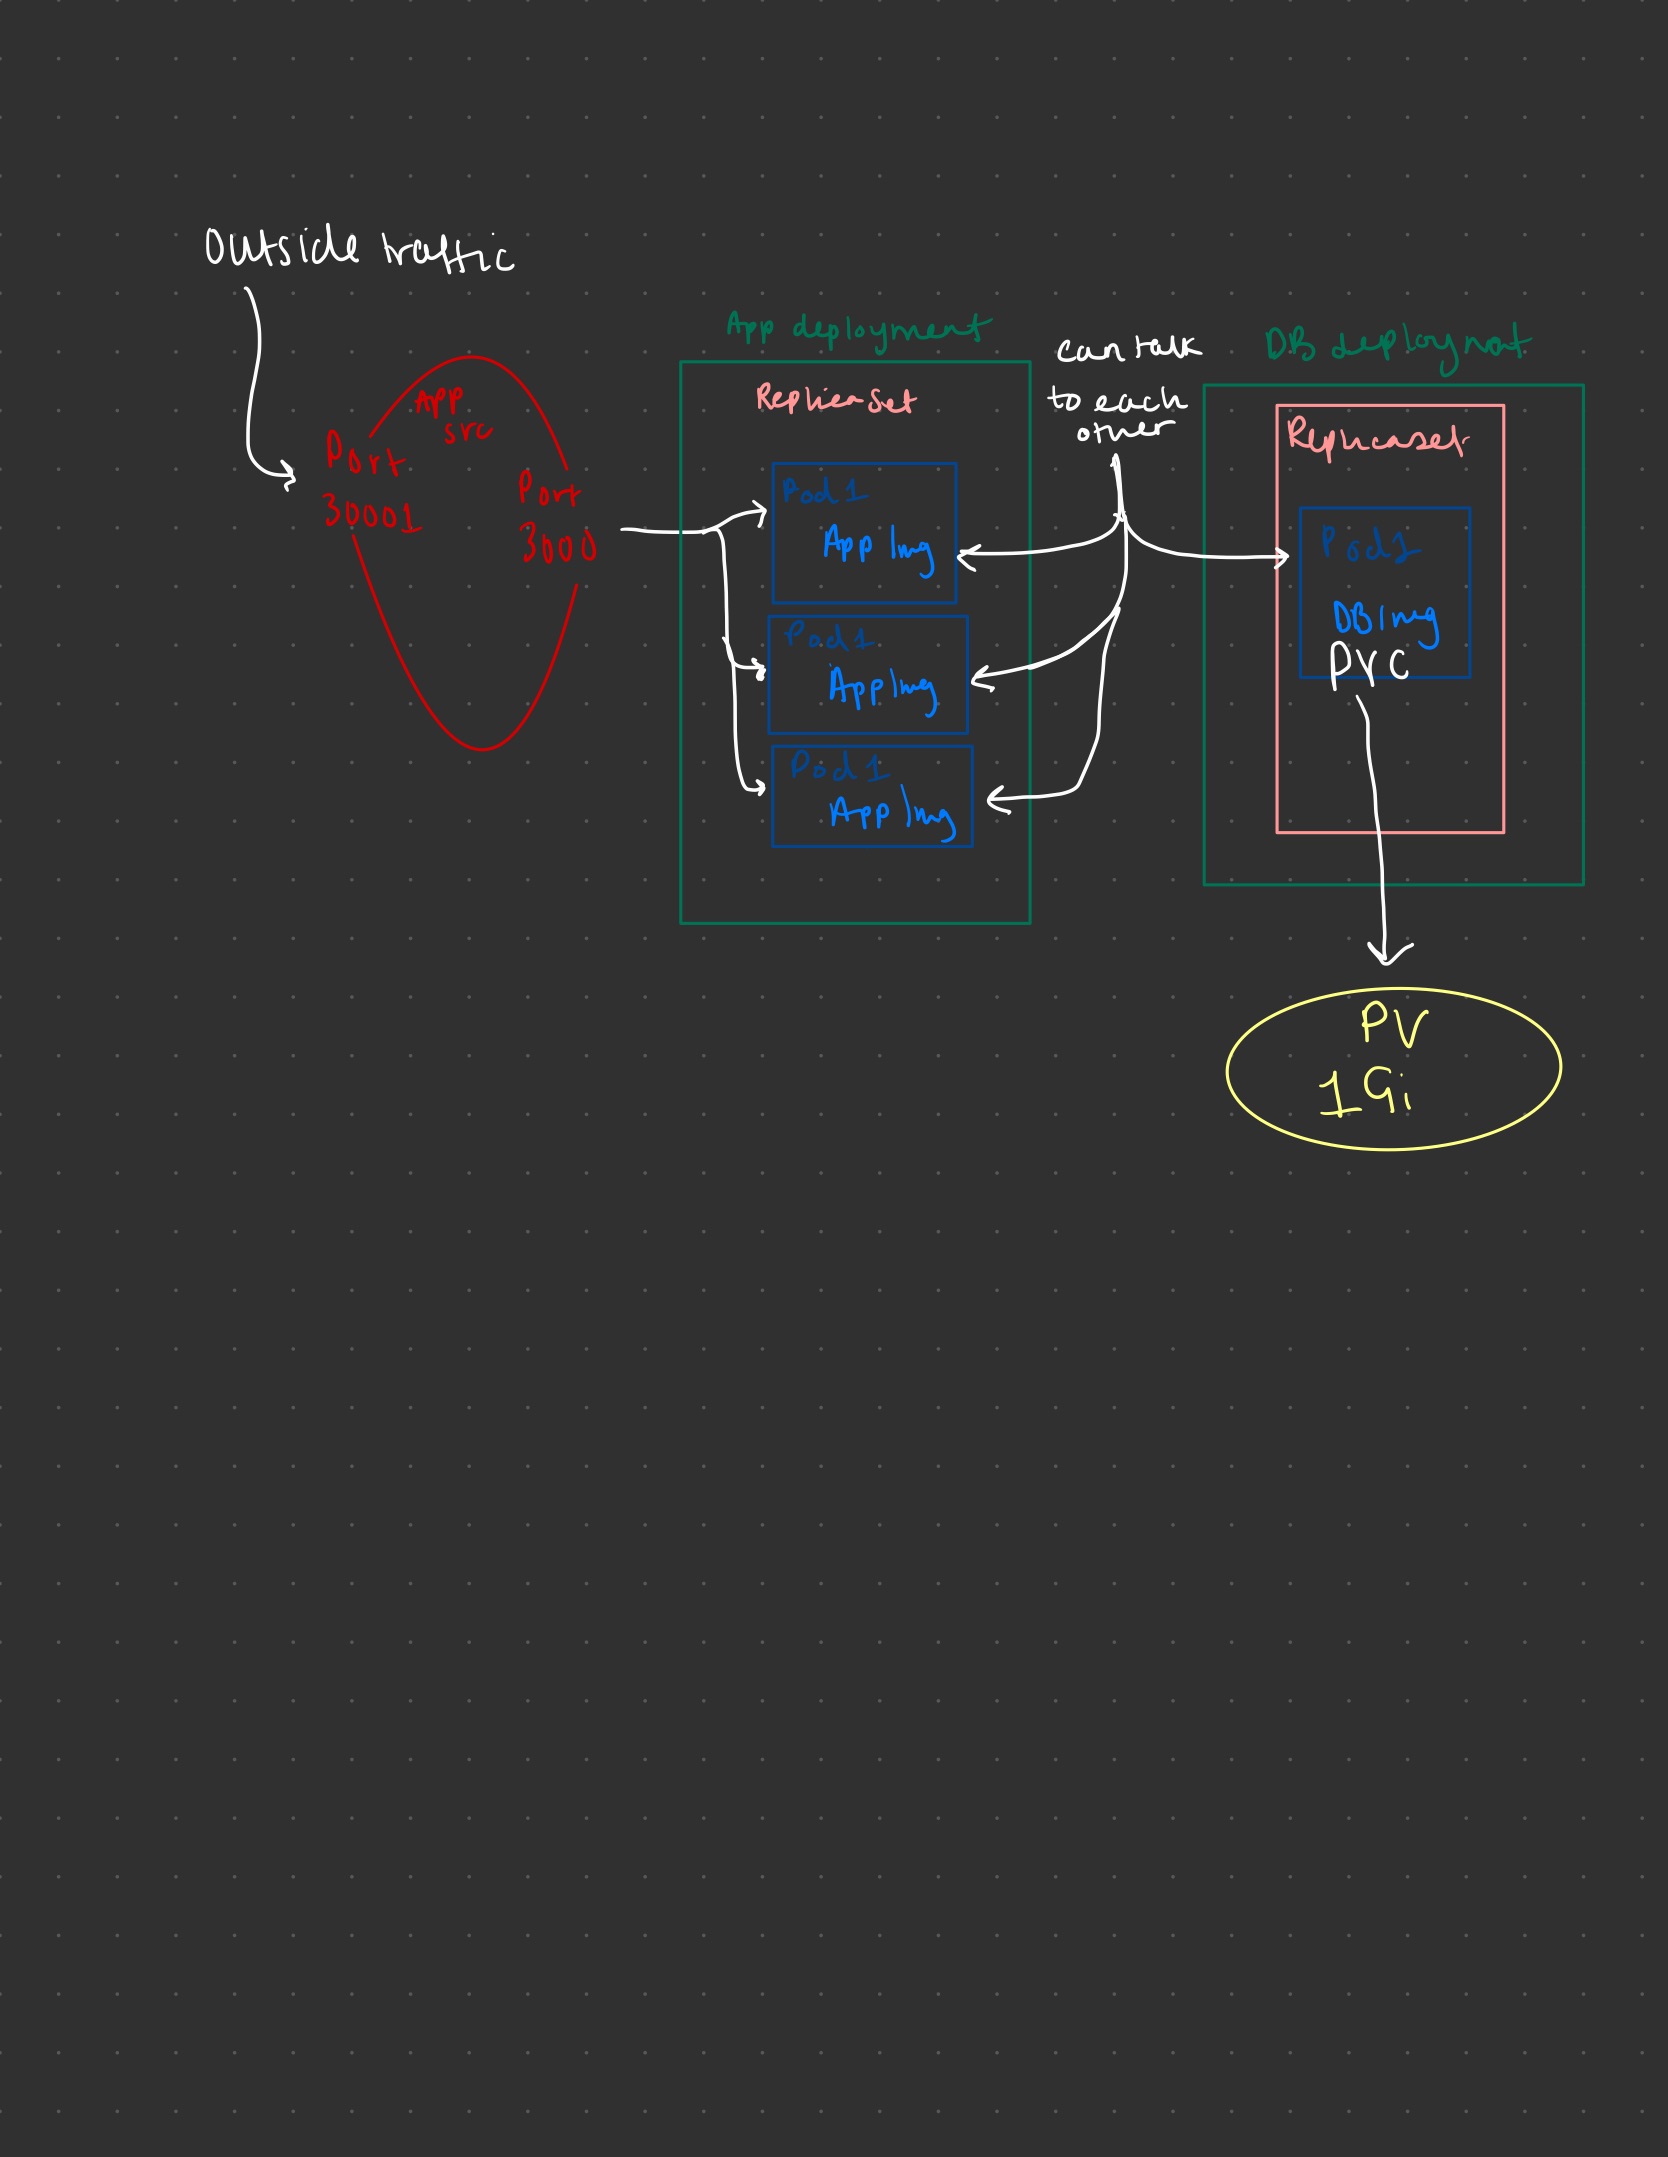 Outside traffic
App
src
Port
30001
Port
3000
App deployment
Replica Set
Pod 1
App Img
Pod 1
App Img
Pod 1
App Img
can talk
to each
other
DB deployment
Replicaset
Pod 1
DB img
PVC
PV
1Gi